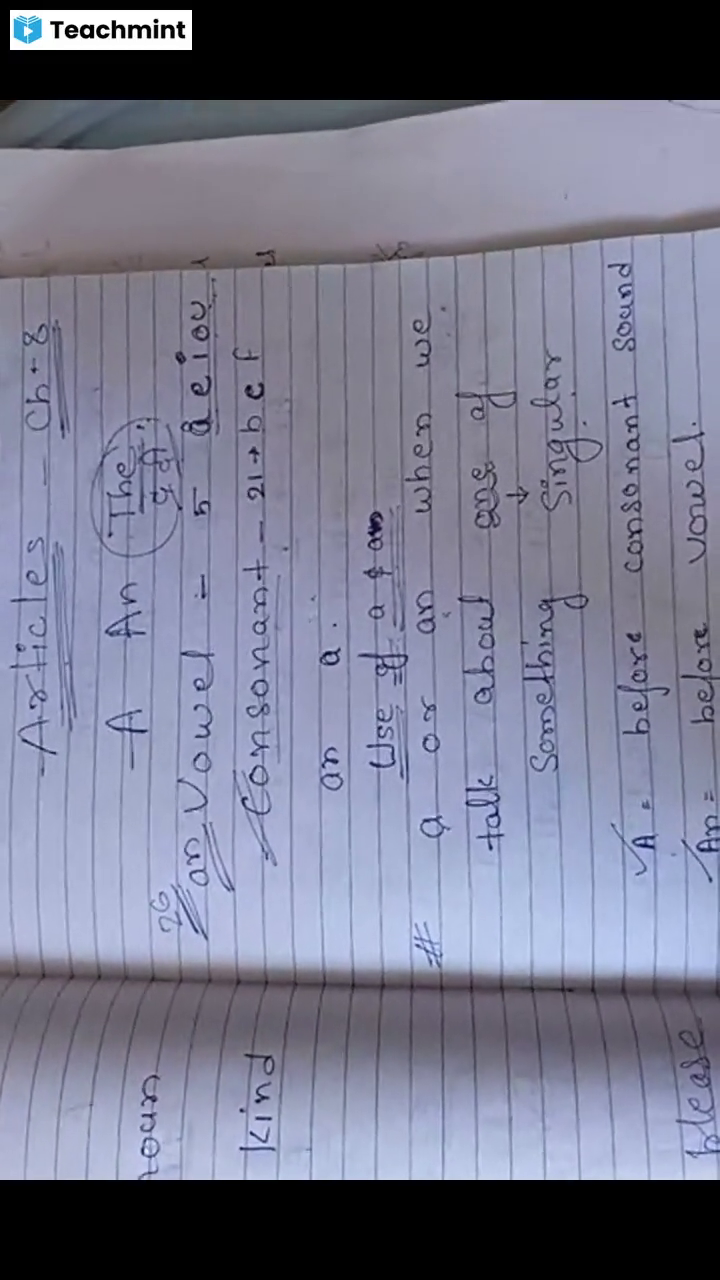 Teachmint
Articles - Ch-8
A An The
an Vowel - 5 a e i o u
26
Consonant - 21 → b c f
an a.
Use of a & an
# a or an when we
talk about one of
↓
Something Singular.
✓ A = before consonant sound
✓ An = before vowel.
noun
kind
please